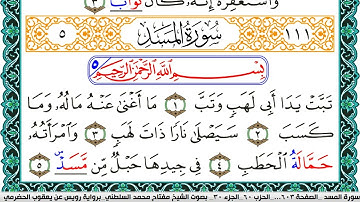 وَاسْتَغْفِرْهُ إِنَّهُ كَانَ تَوَّابًا ٣
١١١ سُورَةُ المَسَدِ ٥
بِسْمِ اللَّهِ الرَّحْمَٰنِ الرَّحِيمِ ٥
تَبَّتْ يَدَا أَبِي لَهَبٍ وَتَبَّ ١ مَا أَغْنَىٰ عَنْهُ مَالُهُ وَمَا
كَسَبَ ٢ سَيَصْلَىٰ نَارًا ذَاتَ لَهَبٍ ٣ وَامْرَأَتُهُ
حَمَّالَةُ الْحَطَبِ ٤ فِي جِيدِهَا حَبْلٌ مِنْ مَسَدٍ ٥
سورة المسد - الصفحة ٦٠٣ - الحزب ٦٠ - الجزء ٣٠ - بصوت الشيخ مفتاح محمد السلطني - برواية رويس عن يعقوب الحضرمي